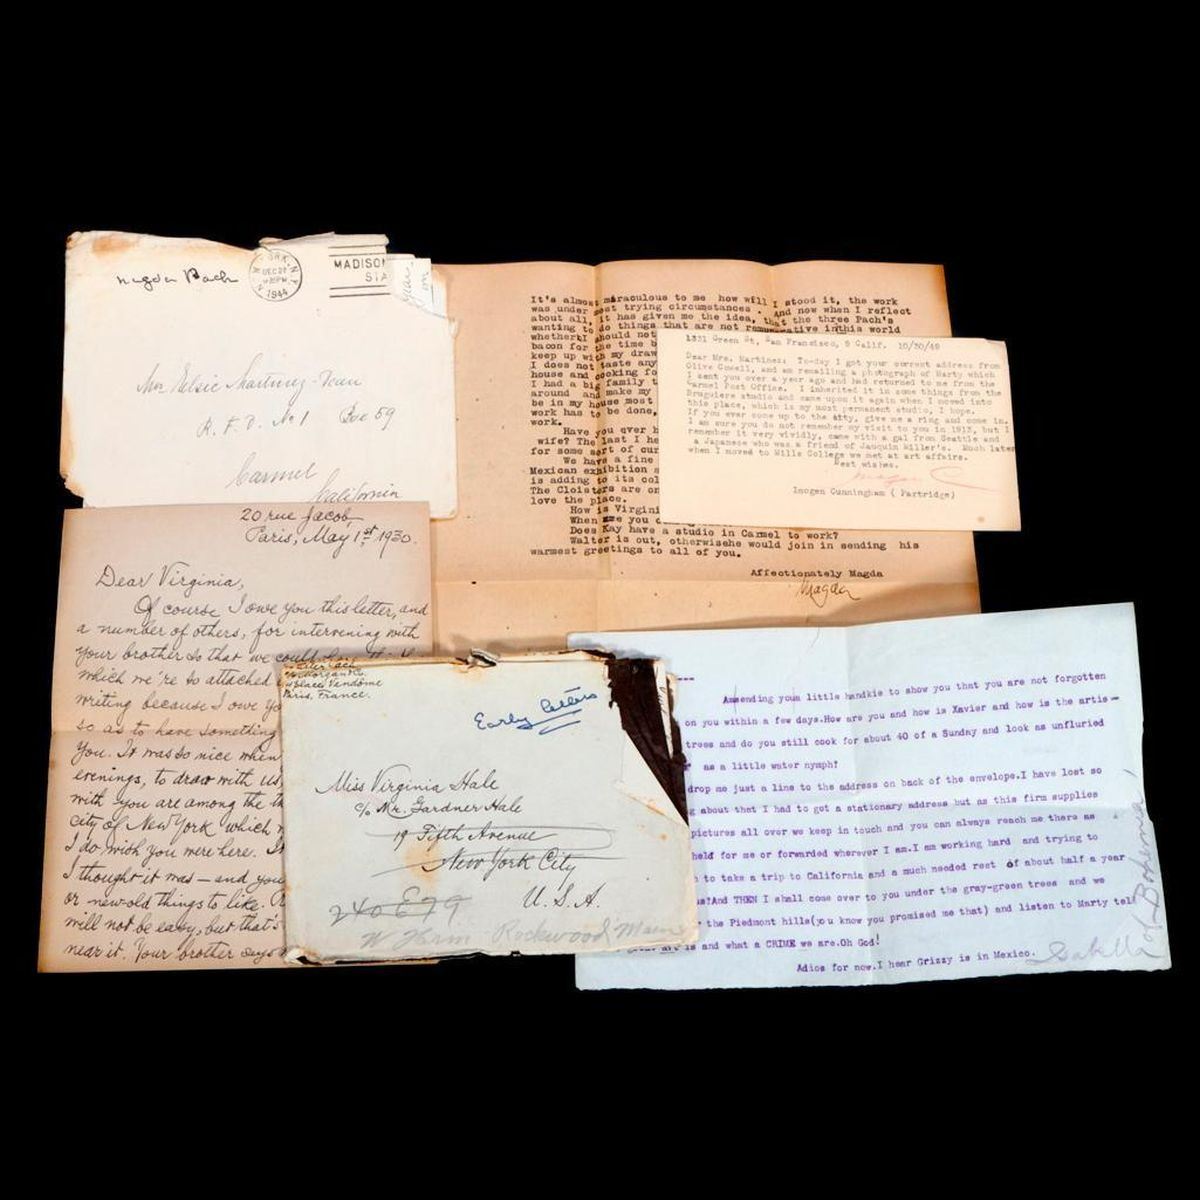 Magda Pach
N.Y.
DEC 21
1944
MADISON
Mrs Elsie Martinez
R. F. D. No 1 Box 59
Carmel
California
It's almost miraculous to me how will I stood it, the work
was under most trying circumstances. And now when I reflect
about all, it has given me the idea, that the three Pach's
wanting to do things that are not remunerative in this world
whether I should not
bacon for the time b
keep up with my draw
I does not taste any
house and cooking fo
I had a big family t
around and make my
be in my house most
work has to be done,
work.
Have you ever h
wife? The last I he
for some sort of cur
We have a fine
Mexican exhibition
is adding to its col
The Cloisters are on
love the place.
How is Virgini
When are you
Does Kay have a studio in Carmel to work?
Walter is out, otherwisehe would join in sending his
warmest greetings to all of you.
Affectionately Magda
Magda
1331 Green St, San Francisco, 9 Calif. 10/30/49
Dear Mrs. Martinez: To-day I got your current address from
Olive Cowell, and am remailing a photograph of Marty which
I sent you over a year ago and had returned to me from the
Carmel Post Office. I inherited it in some things from the
Bruguiere studio and came upon it again when I moved into
this place, which is my most permanent studio, I hope.
If you ever come up to the atty, give me a ring and come.
I am sure you do not remember my visit to you in 1913, but I
remember it very vividly, came with a gal from Seattle and
a Japanese who was a friend of Jaoquin Miller's. Much later
when I moved to Mills College we met at art affairs.
Best wishes.
Imogen C
Imogen Cunningham ( Partridge)
20 rue Jacob
Paris, May 1st, 1930.
Dear Virginia,
Of course I owe you this letter, and
a number of others, for intervening with
your brother so that we could
which we're so attached
writing because I owe yo
so as to have something
you. It was so nice when
evenings, to draw with us,
with you are among the th
city of New York which
I do wish you were here. It
I thought it was — and you
or new-old things to like.
will not be easy, but that's
near it. Your brother says
Walter Pach
c/o Morgan & Co.
Place Vendôme
Paris, France.
Early letters
Miss Virginia Hale
c/o Mr. Gardner Hale
19 Fifth Avenue
New York City
U.S.A.
240 E 79
Rockwood Maine
Amsending youa little handkie to show you that you are not forgotten
on you within a few days.How are you and how is Xavier and how is the artis—
trees and do you still cook for about 40 of a Sunday and look as unfluried
as a little water nymph?
drop me just a line to the address on back of the envelope.I have lost so
g about that I had to got a stationary address but as this firm supplies
pictures all over we keep in touch and you can always reach me there as
held for me or forwarded wherever I am.I am working hard and trying to
h to take a trip to California and a much needed rest of about half a year
us?And THEN I shall come over to you under the gray-green trees and we
r the Piedmont hills(you know you promised me that) and listen to Marty tell
is and what a CRIME we are.Oh God!
Adios for now.I hear Grizzy is in Mexico.
Isabella of Bohemia